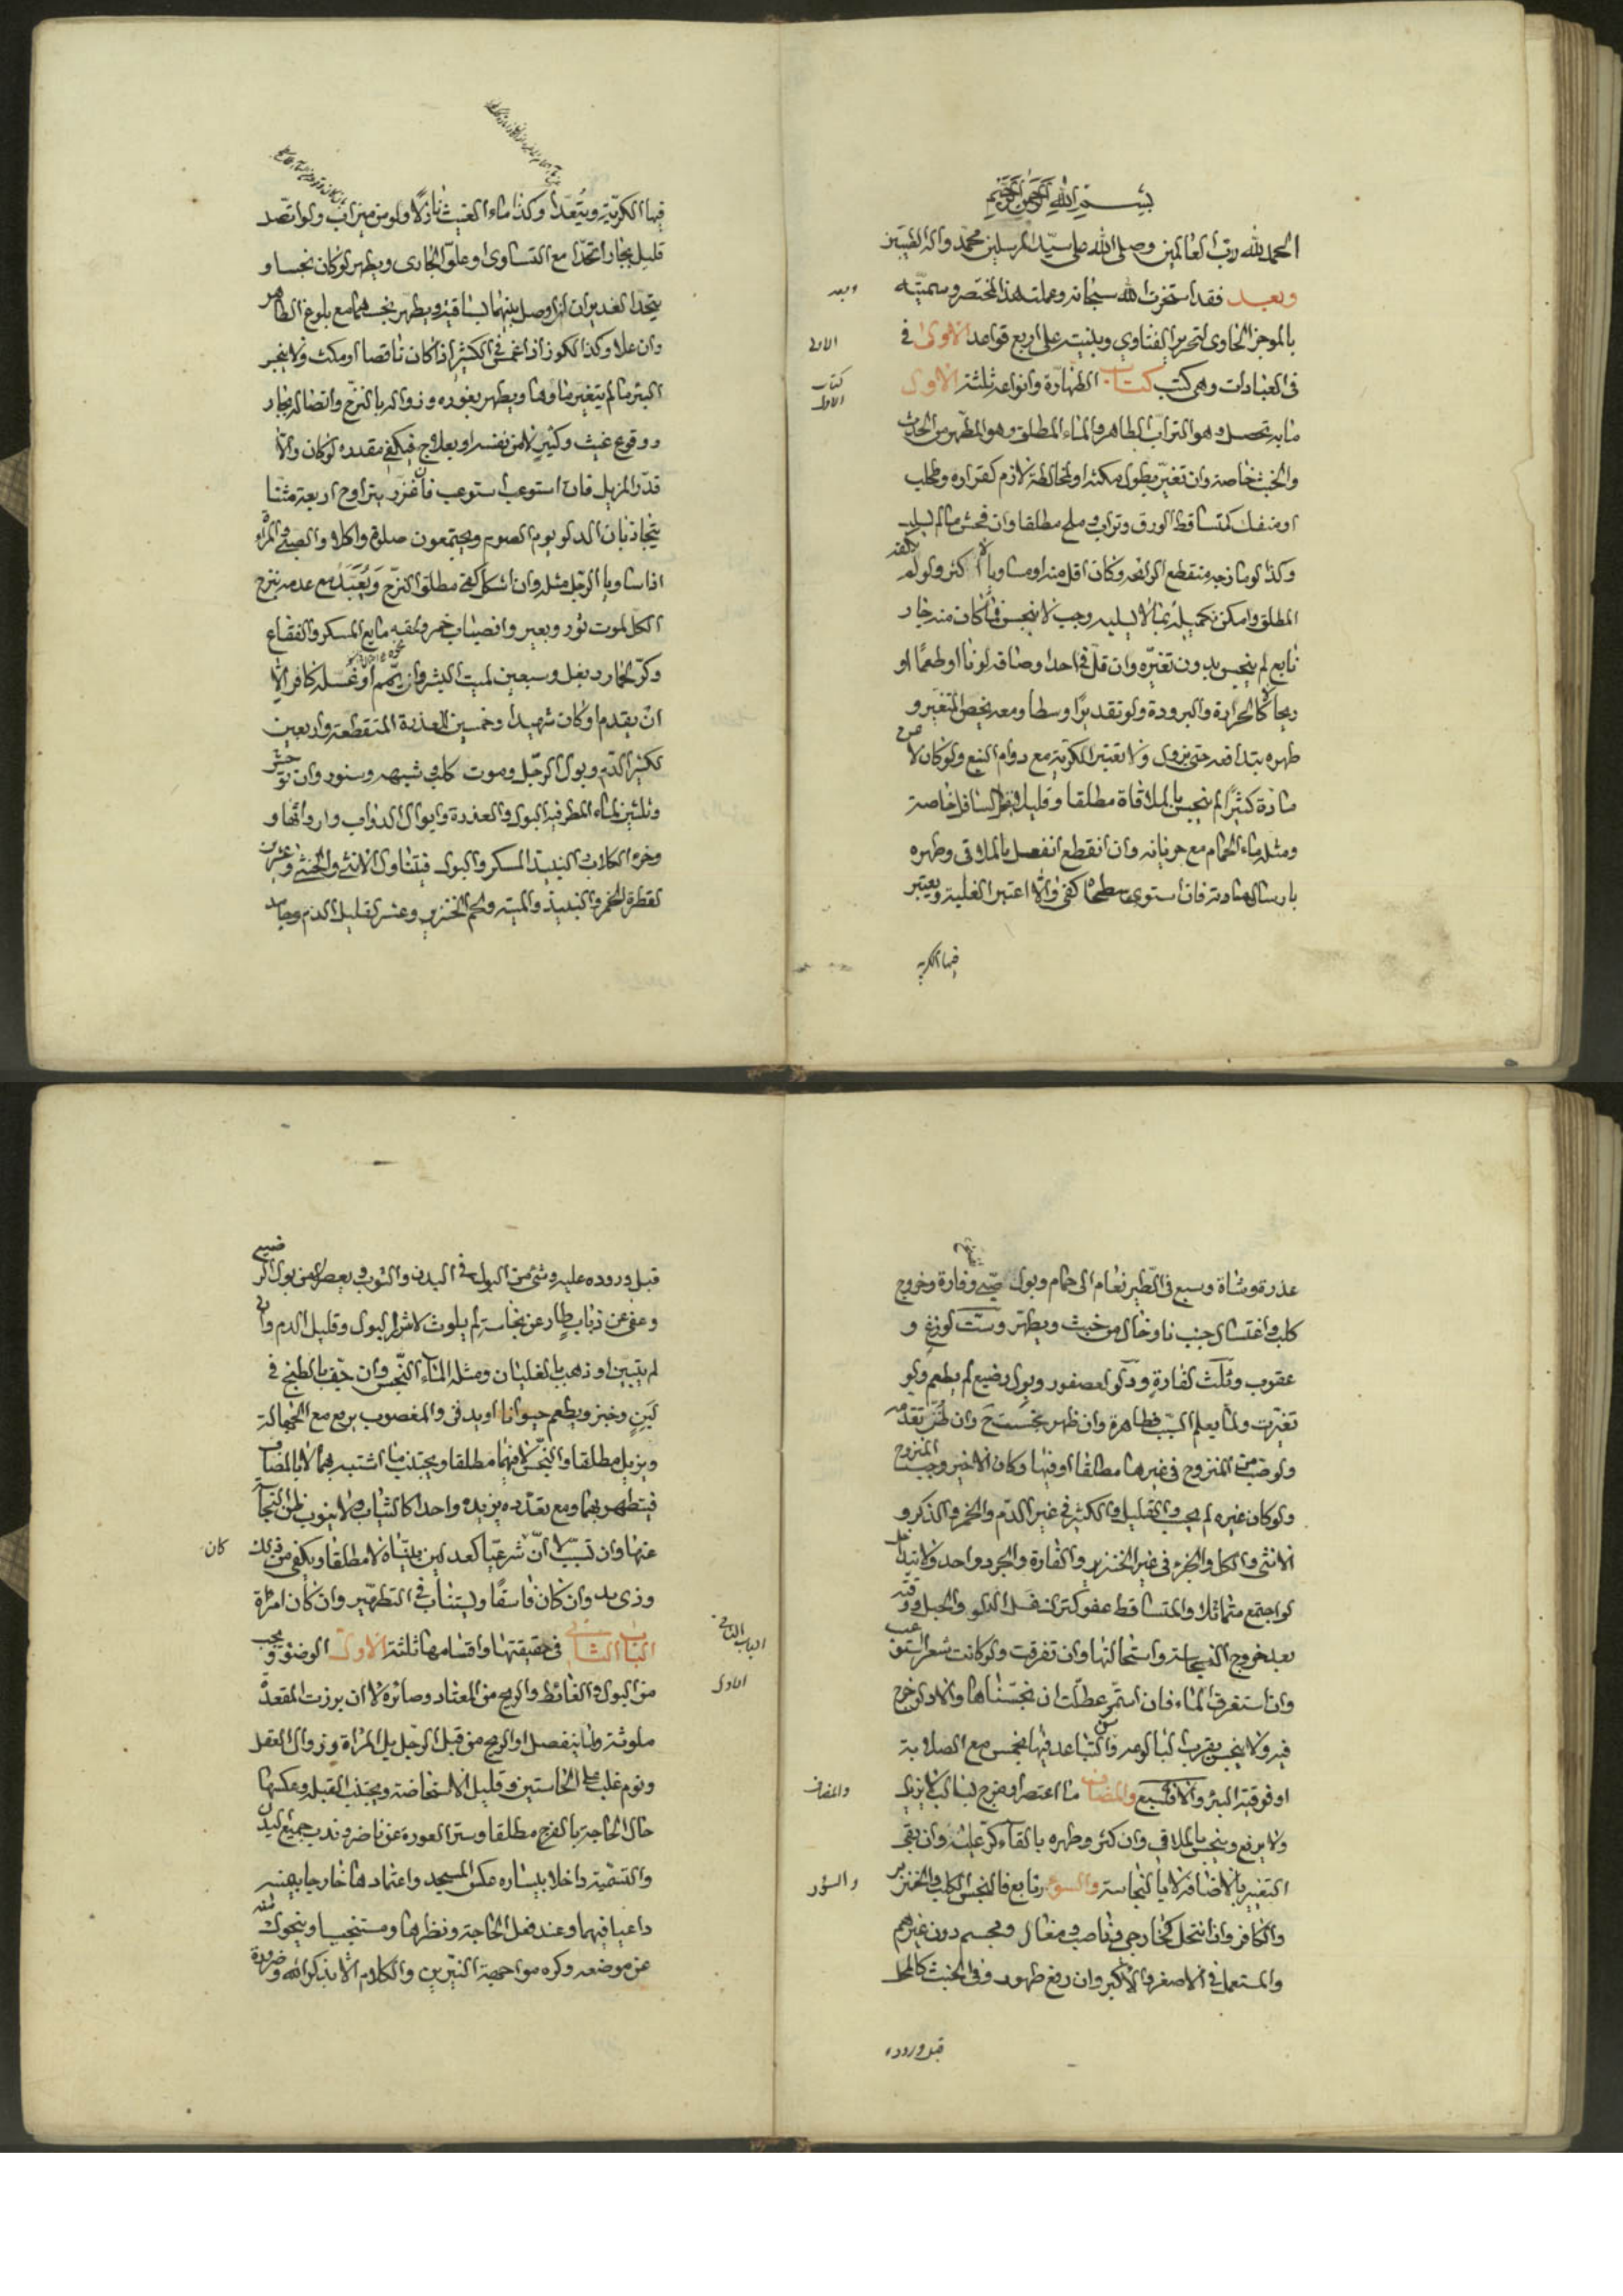 بسم الله الرحمن الرحيم
الحمد لله رب العالمين وصلى الله على سيد المرسلين محمد واله الطيبين
وبعد فقد استخرت الله سبحانه وعملت هذا المختصر وسميته
وبعد
بالموجز الحاوى لتحرير الفتاوي وبنيته على اربع قواعد الاولى في
الاولى
فى العبادات وهى كتب كتاب الطهارة وانواعه ثلثة الاول
كتاب
الاول
مابه تحصل وهو التراب الطاهر والماء المطلق وهو المطهر من الحدث
والخبث خاصة وان تغير بطول مكثه او لمخالطة لازم كقراره وطحلب
او منفك كتساقط الورق وتراب وملح مطلقا وان فحش ما لم يسلبه
وكذا لو مازجه منقطع الرائحه وكان اقل منه او مساويا لا اكثر ولو لم يكفه
المطلق وامكن تكميله بما لا يسلبه وجب لا ينجس فما كان منه جار
نابع لم ينجس بدون تغيره وان قل في احد اوصافه لونا او طعما او
ريحا لا كالحرارة والبرودة ولو تقديرا وسطا ومعه يخص المتغير و
طهره بتدافعه حتى يزول ولا تعتبر الكرية مع دوام النبع ولو كان لا عن
مادة كثيرا لم ينجس بالملاقاة مطلقا وقليلا السافل خاصة
ومثله ماء الحمام مع جريانه وان انقطع انفصل بالملاقى وطهره
بارسال مادته فان استوى سطحاه كفى والا اعتبر الغلبة ويعتبر
فيها الكرية
فيها الكرية ويتعدا وكذا ماء الغيث نازلا ولو من ميزاب ولو اتصل
قليل بجار اتحدا مع التساوى او علو الجارى ويطهر لو كان نجسا و
يتحد الغديران ان وصل بينهما بساقية ويطهر نجسهما مع بلوغ الطاهر
وان علا وكذا الكوز اذا غمس في الكثير اذا كان ناقصا او مكث ولا ينجس
البئر ما لم يتغير ماوها ويطهر بغوره وزواله بالنزح واتصاله بجار
ووقوع غيث وكثير لا من نفسه او بعلاج فيكفي مقدره لو كان والا
قدر المزيل فان استوعب استوعب فان غزر يتراوح اربعة مثنا
يتجاذبان الدلو يوم الصوم ويجتمعون صلوة واكلا والصبى والمراه
اذا ساويا الرجل مثله وان اشكل كفى مطلق النزح مع عدمه ينزح
الكل لموت ثور وبعير وانصباب خمر وفقيه مايع المسكر والفقاع
وكر لحمار وبغل وسبعين لميت البشر وان او غسله كافر الا
ان يقدم او كان شهيدا وخمسين للعذرة المتقطعة واربعين
لكثير الدم وبول الرجل وموت كلب وشبهه وسنور وان توحش
وثلثين لماء المطر فيه البول والعذرة وابوال الدواب وارواثها و
وخرء الكلاب النبيذ المسكر والبول فيتناول الانثى والخنثى وعشرين
لقطرة الخمر والنبيذ والميتة ولحم الخنزير وعشر لقليل الدم ويابس
عذرة وشاة وسبع فى الطير نعام الى حمام وبول صبى وفارة وخروج
كلب واغتسال جنب ناو خال من خبث ويطهر وست لوزغ و
عقرب وثلث لفارة ودلو لعصفور وبول رضيع لم يطعم ولو
تغيرت ولما يعلم السبب فطاهرة وان ظهر وان ظن تقدمه
ولو صب المنزوح فى غيرها مطلقا او فيها وكان الاخير وجب المنزوح
ولو كان غيره لم يجب والقليل والكثير في غير الدم والخمر والذكر و
الانثى والكل والجزء فى غير الخنزير والفارة والجرد واحد ولا تداخل
لو اجتمع متماثلا والمتساقط عفو كترك غسل الدلو والحبل ووقته
بعد خروج النجاسة واستحالتها وان تفرقت ولو كانت شعرا استوعب
وان استغرق الماء فان استمر عطلت ان نجسناها والا دلو خرج
فيه ولا ينجس بقرب البالوعة والتباعد فيها بخمس مع الصلابة
او فوقية البئر والا فسبع والمضاف ما اعتصر او مزج بسالب لا يزيل
والمضاف
ولا يرفع وينجس بالملاقي وان كثر وطهره بالقاء كر عليه وان بقى
التغير بالاضافة لا بالنجاسة والسؤر تابع فالنجس الكلب والخنزير
والسؤر
والكافر وان انتحل كخارجي وناصب ومغال ومجسم دون غيرهم
والمستعمل في الاصغر والاكبر وان رفع طهور وفى الخبث كالمحل
قبل وروده
قبل وروده عليه وشئ من البول في البدن والثوب ويعصر لا من بول الرضيع
وعفى عن ذباب طار عن نجاسة لم يلوث لا اثر البول وقليل الدم وان
لم يتبين او ذهب بالغليان ومثله الماء النجس وان خف بالطبخ في
لبن وخبز ويطعم حيوانا او يدفن والمغصوب يرفع مع الجهالة
ويزيل مطلقا والنجس لا فيهما مطلقا ويجتنب ما اشتبه بهما لا بالمضاف
فيتطهر بهما ومع تعدده يزيد واحدا كالثياب ولا ينوب ظن النجاسة
عنها وان تسبب الا ان شرعيا كعدلين بيناه لا مطلقا ويكفي من ذلك
كان
وذى يد وان كان فاسقا ويستناب في التطهير وان كان امراة
الباب الثاني فى حقيقتها واقسامها ثلثة الاول الوضوء ويجب
الباب الثاني
الاول
من البول والغائط والريح من المعتاد وصائره لا ان برزت المقعدة
ملوثة ولما ينفصل او الريح من قبل الرجل بل المراة وزوال العقل
ونوم غلب على الحاستين وقليل الاستحاضة ويجتنب القبلة وعكسها
حال الحاجة بالفرج مطلقا وستر العورة عن ناظر وندب جميع البدن
والتسمية داخلا بيساره عكس المسجد واعتماد ها خارجا بيمينه
داعيا فيهما وعند فعل الحاجة ونظرها ومستنجيا ويتحول
عن موضعه وكره مواجهة النيرين والكلام الا بذكر الله وضرورة